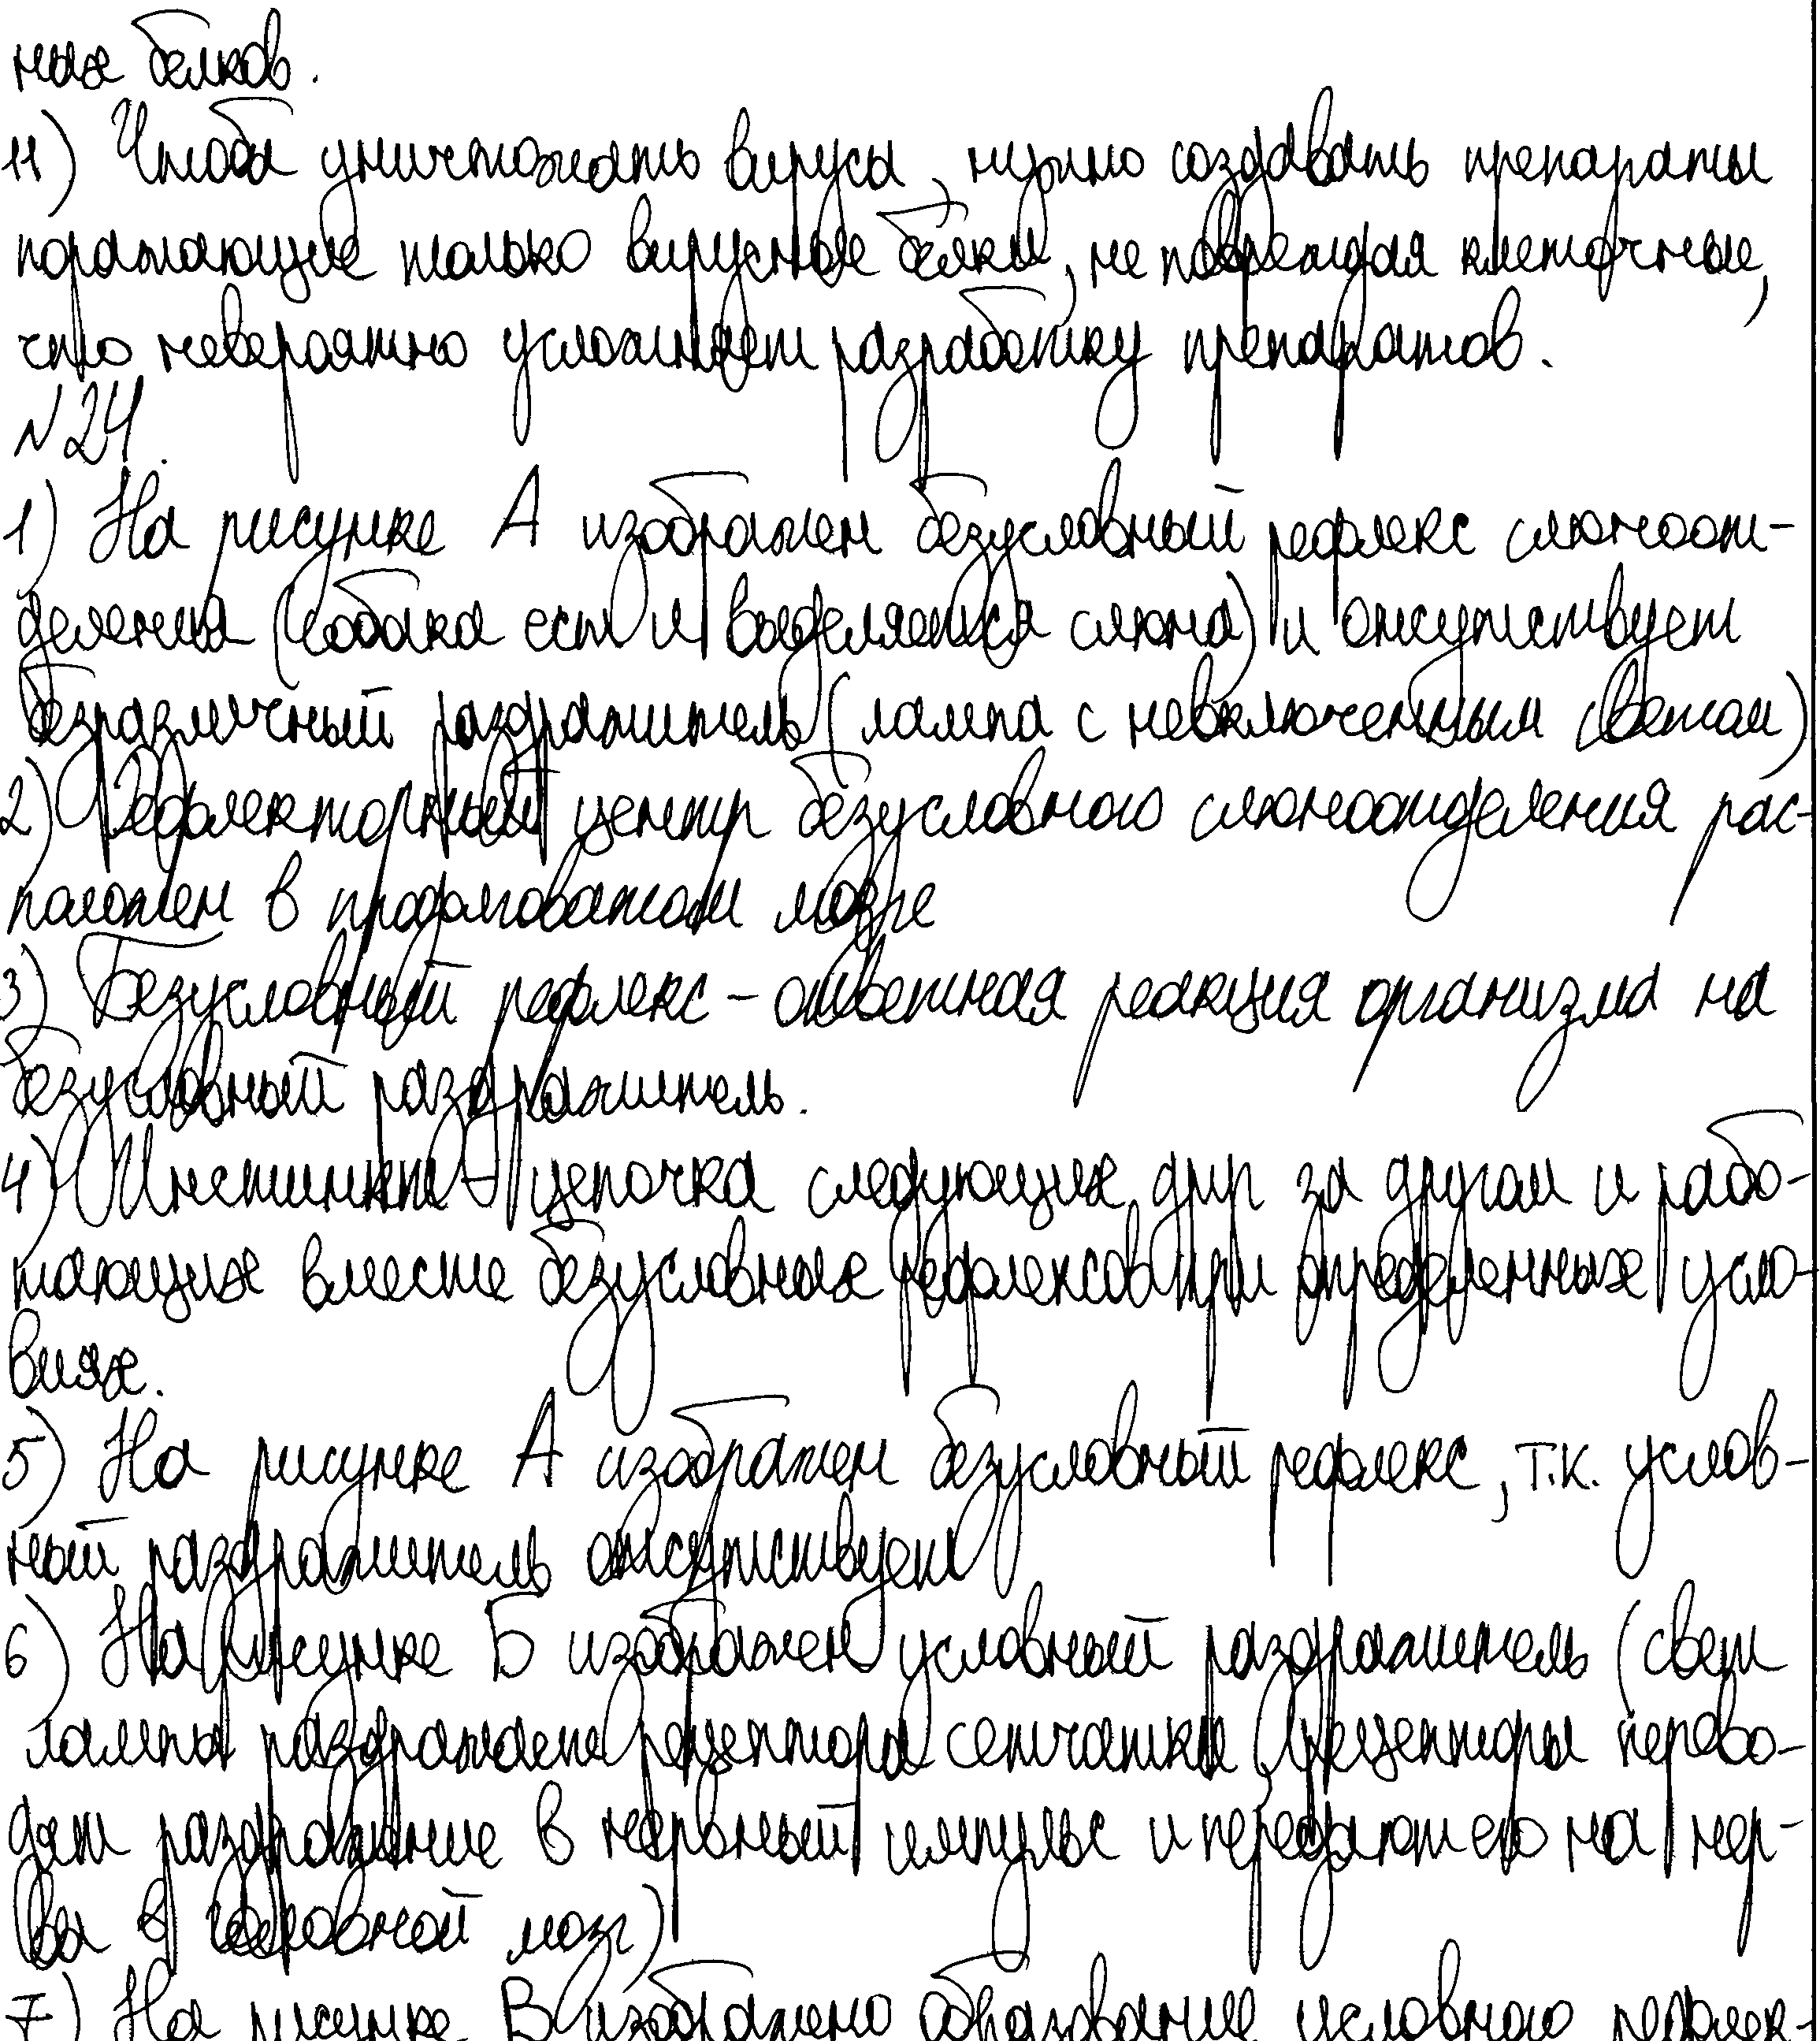 ных белков.
11) Чтобы уничтожать вирусы, нужно создавать препараты
поражающие только вирусные белки, не повреждая клеточные,
что невероятно усложняет разработку препаратов.
№24.
1) На рисунке А изображен безусловный рефлекс слюноот-
деления (собака ест и выделяется слюна) и отсутствует
безразличный раздражитель (лампа с невключенным светом)
2) Рефлекторный центр безусловного слюноотделения рас-
положен в продолговатом мозге
3) Безусловный рефлекс - ответная реакция организма на
безусловный раздражитель.
4) Инстинкт - цепочка следующих друг за другом и рабо-
тающих вместе безусловных рефлексов при определенных усло-
виях.
5) На рисунке А изображен безусловный рефлекс, т.к. услов-
ный раздражитель отсутствует
6) На рисунке Б изображен условный раздражитель (свет
лампы раздражает рецепторы сетчатки, рецепторы перево-
дят раздражение в нервный импульс и передают его на нер-
вы в головной мозг)
7) На рисунке В изображено образование условного рефлек-